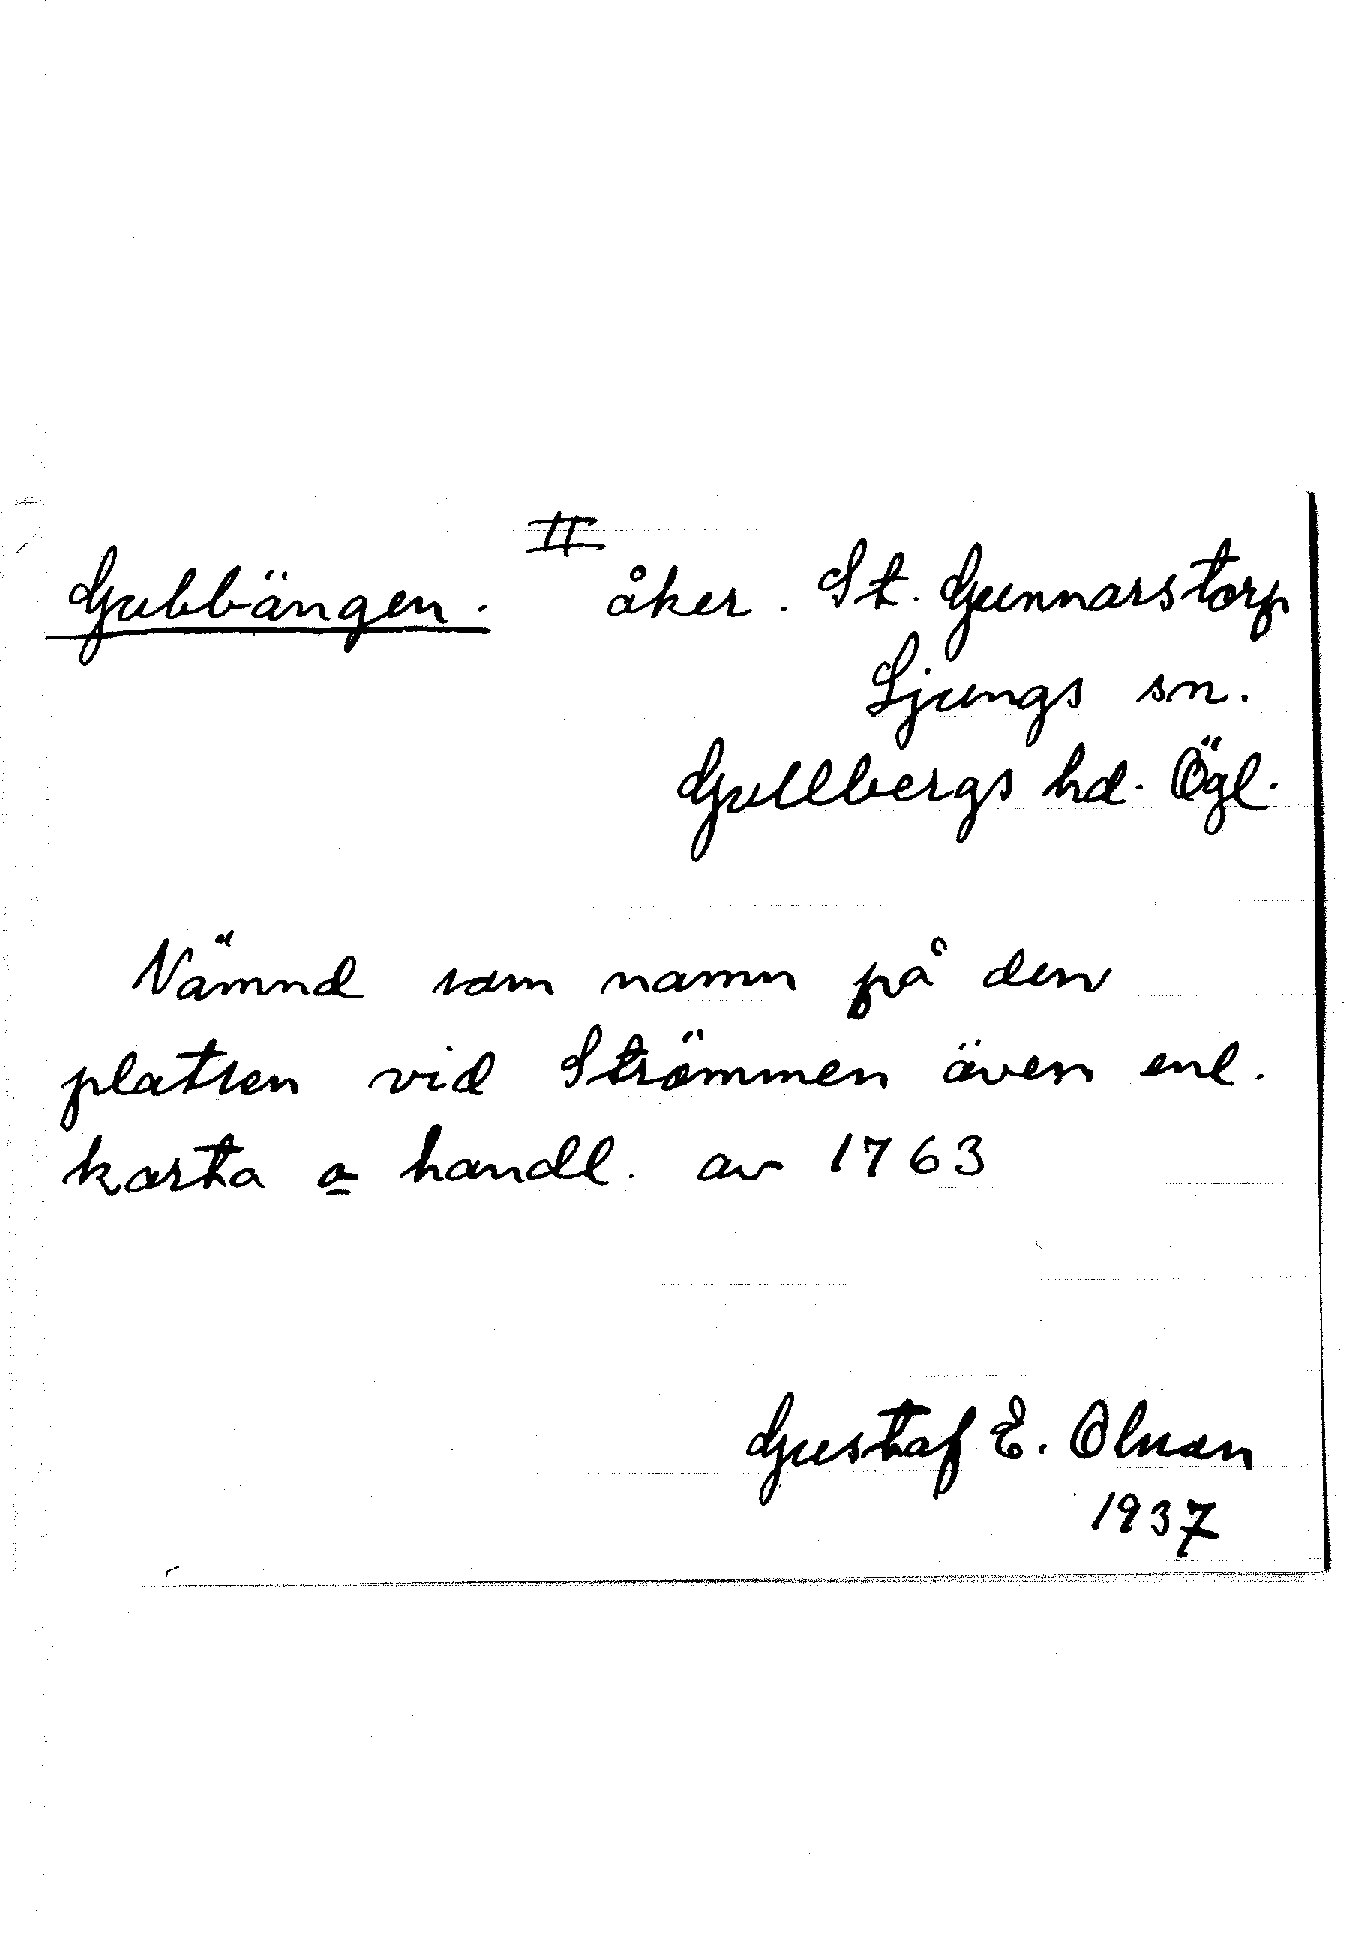 II
Gubbängen. åker. St. Gunnarstorp
Ljungs sn.
Gullbergs hd. Ögl.
Nämnd som namn på den
platsen vid Strömmen även enl.
karta o handl. av 1763
Gustaf E. Olman
1937